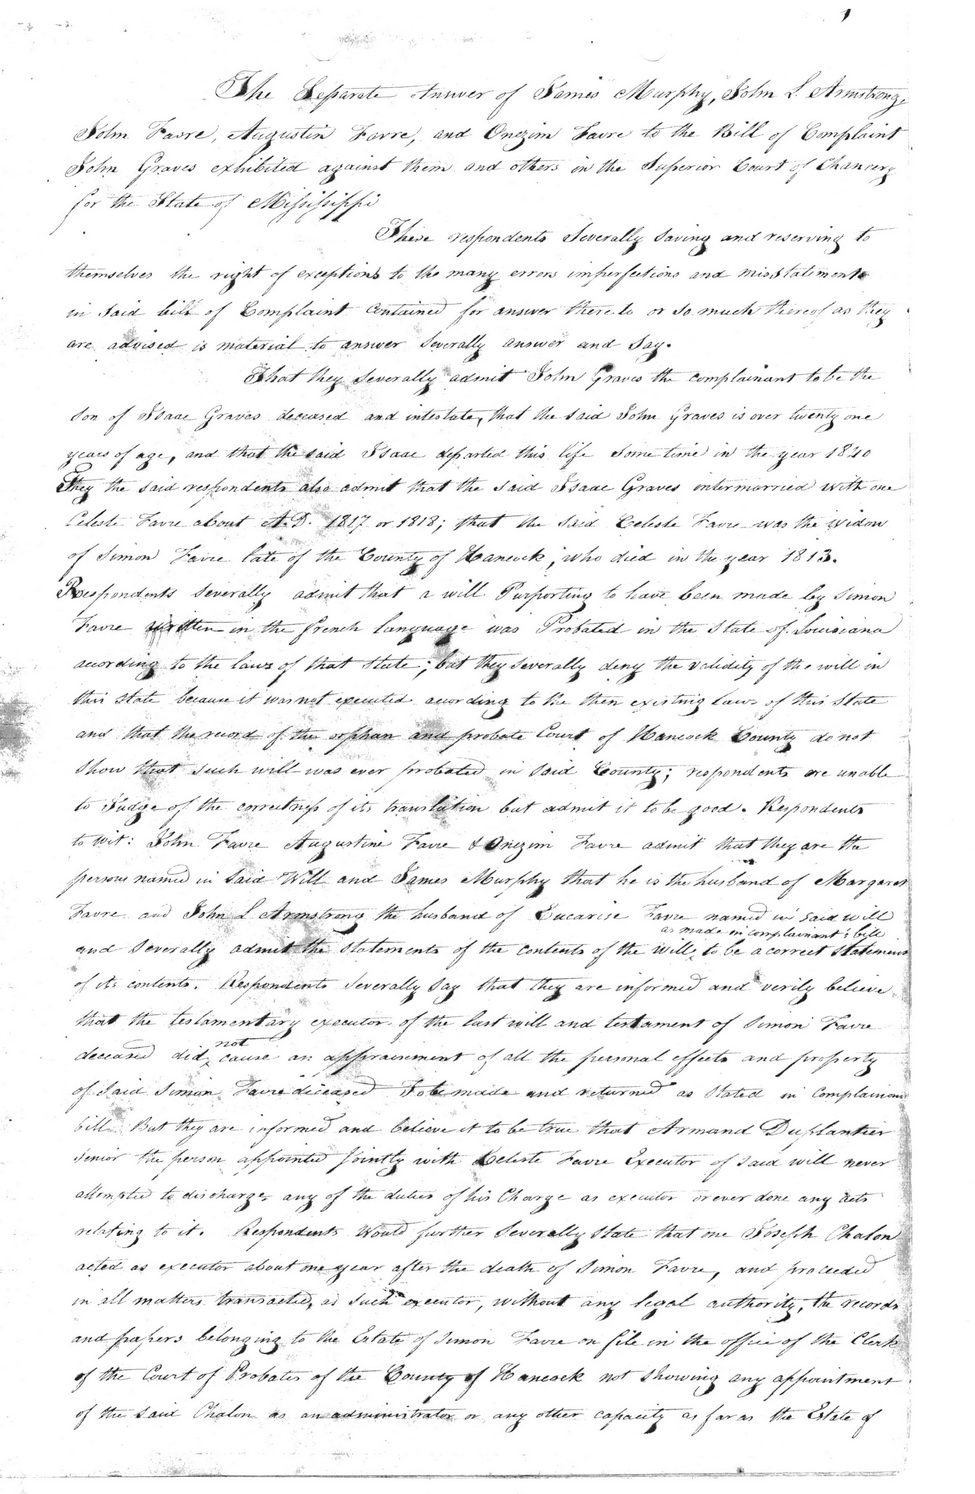 The Separate Answer of James Murphy, John L Armstrong,
John Favre, Augustin Favre, and Onezim Favre to the Bill of Complaint
John Graves exhibited against them and others in the Superior Court of Chancery
for the State of Mississippi
These respondents Severally Saving and reserving to
themselves the right of exceptions to the many errors imperfections and misstatements
in Said bill of Complaint contained for answer thereto or So much thereof as they
are advised is material to answer Severally answer and Say.
That they Severally admit John Graves the complainant to be the
Son of Isaac Graves deceased and intestate, that the Said John Graves is over twenty one
years of age, and that the said Isaac departed this life Some time in the year 1840
They the said respondents also admit that the said Isaac Graves intermarried with one
Celeste Favre about A.D. 1817 or 1818; that the Said Celeste Favre was the widow
of Simon Favre late of the County of Hancock, who died in the year 1813.
Respondents Severally admit that a will Purporting to have been made by Simon
Favre written in the french language was Probated in the State of Louisiana
acording to the laws of that State; but they Severally deny the validity of the will in
this State because it was not executed acording to the then existing laws of this State
and that the record of the orphan and probate Court of Hancock County do not
Show that Such will was ever probated in Said County; respondents are unable
to Judge of the correctness of its translation but admit it to be good. Respondents
to wit: John Favre Augustine Favre & Onezim Favre admit that they are the
persons named in Said Will and James Murphy that he is the husband of Margaret
Favre and John L Armstrong the husband of Eucarise Favre named in Said will
as made in complainant's bill
and Severally admit the Statements of the contents of the will, to be a correct Statement
of its contents. Respondents Severally Say that they are informed and verily believe
that the testamentary executor of the last will and testament of Simon Favre
not
deceased did cause an appraisement of all the personal effects and property
of Said Simon Favre deceased To be made and returned as Stated in Complainants
bill. But they are informed and believe it to be true that Armand Duplantier
Senior the person appointed jointly with Celeste Favre Executor of Said will never
attempted to discharge any of the duties of his Charge as executor or ever done any acts
relating to it. Respondents Would further Severally State that one Joseph Chalon
acted as executor about one year after the death of Simon Favre, and proceeded
in all matters transacted, as Such executor, without any legal authority, the records
and papers belonging to the Estate of Simon Favre on file in the office of the Clerk
of the Court of Probates of the County of Hancock not Showing any appointment
of the said Chalon as an administrator or any other capacity as far as the Estate of